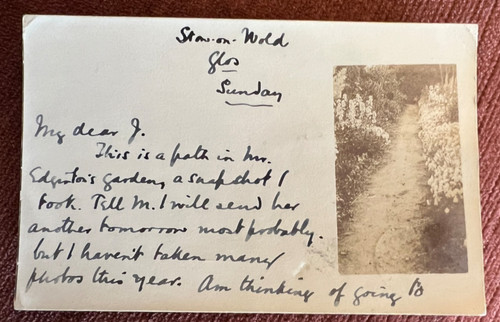 Stow-on-Wold
Glos
Sunday
My dear J.
This is a path in Mr.
Edginton's garden, a snapshot I
took. Tell M. I will send her
another tomorrow most probably.
but I haven't taken many
photos this year. Am thinking of going to